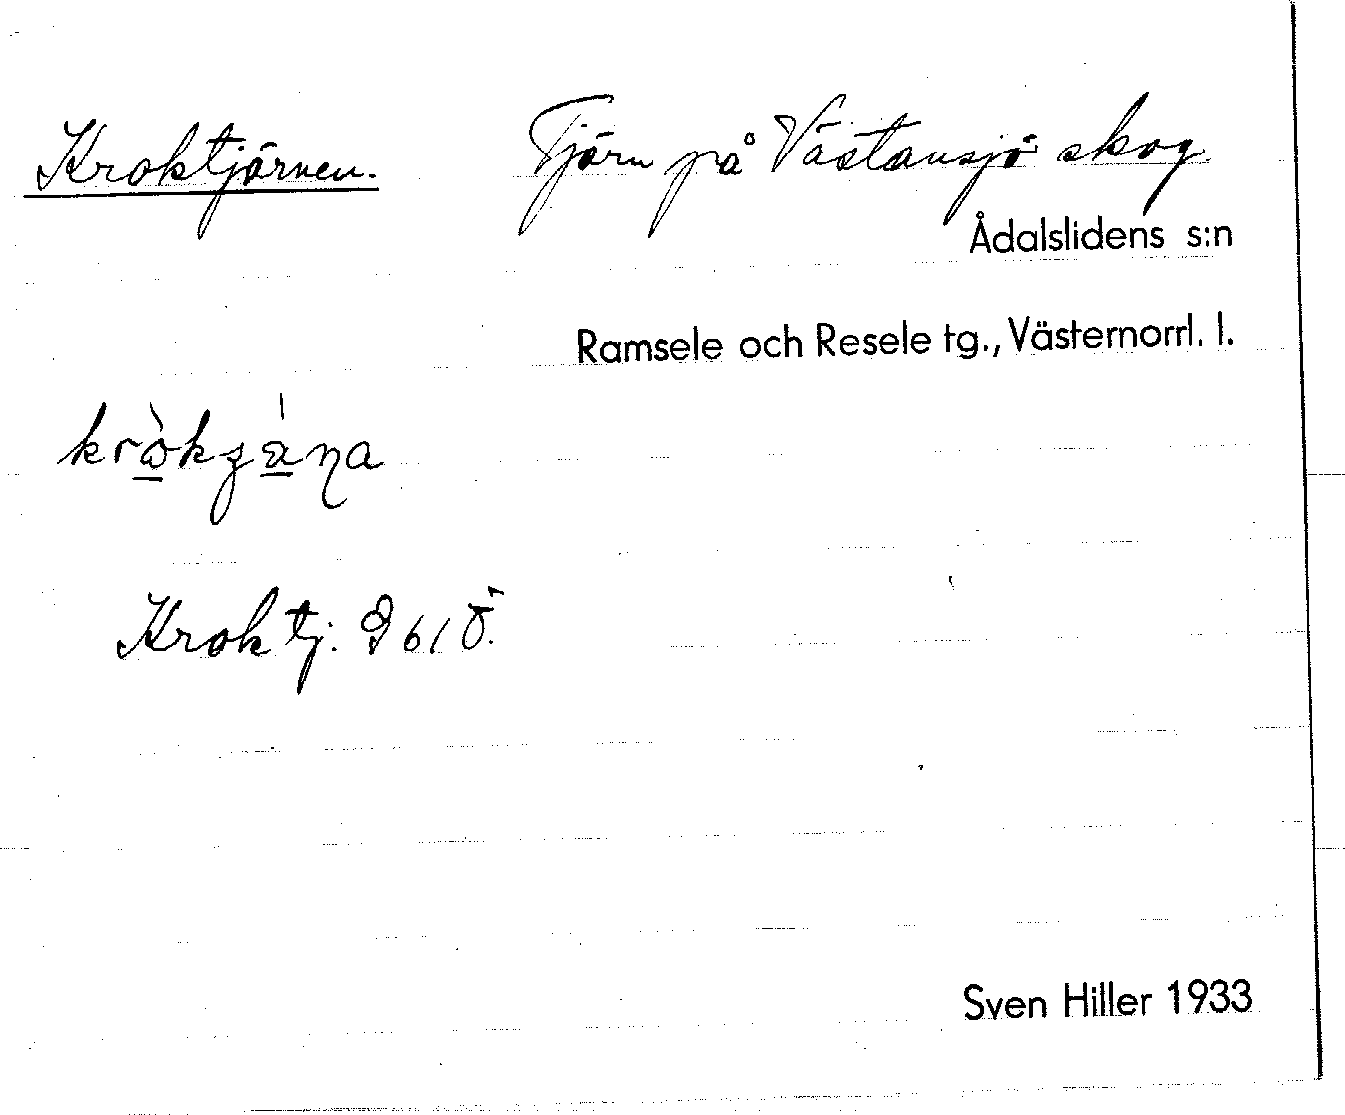 Kroktjärnen. Tjärn på Västansjö skog
Ådalslidens s:n
Ramsele och Resele tg., Västernorrl. l.
Kroktj. 61 Ö.
Sven Hiller 1933